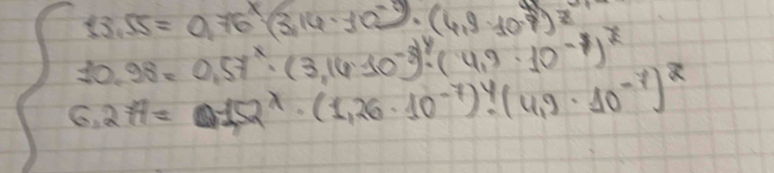 13,55 = 0,76^x (3,14·10^-9)^y · (4,9·10^-7)^z
10,98 = 0,57^x · (3,14·10^-9)^y · (4,9·10^-7)^z
6,277 = 1,52^x · (1,26·10^-7)^y · (4,9·10^-7)^z